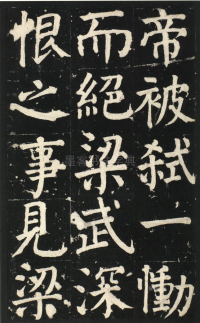 帝被弑一慟
而絕梁武深
恨之事見梁